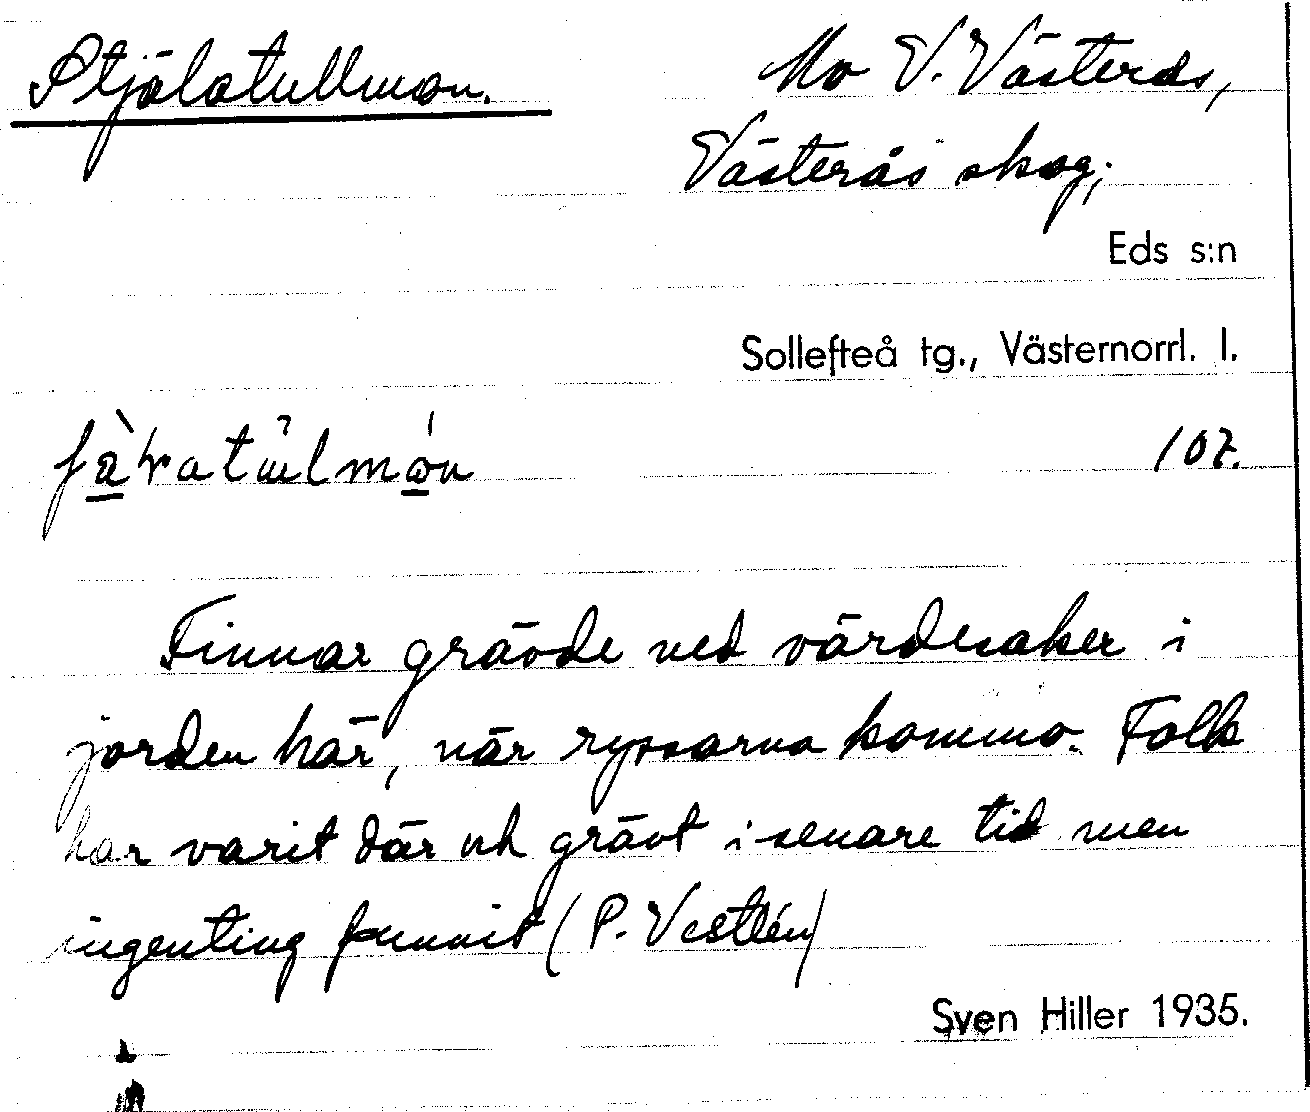 Stjälatullmon.
Mo V. Västerås,
Västerås skog;
Eds s:n
Sollefteå tg., Västernorrl. l.
107.
Finnar grävde ned värdesaker i
jorden här, när ryssarna kommo. Folk
har varit där och grävt i senare tid men
ingenting funnit (P. Vestlén)
Sven Hiller 1935.